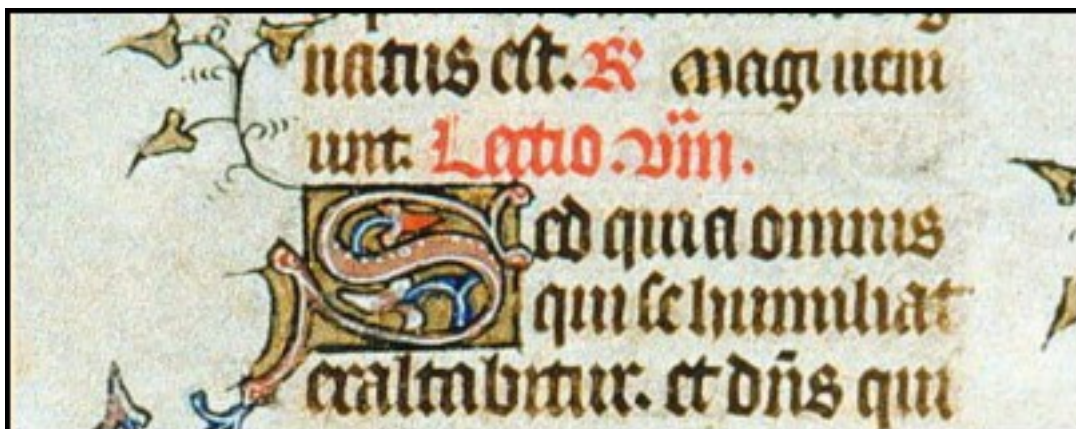 natus est. R' magi ueni
unt. Lectio .viii.
Sed quia omnis
qui se humiliat
exaltabitur. et dn̄s qui